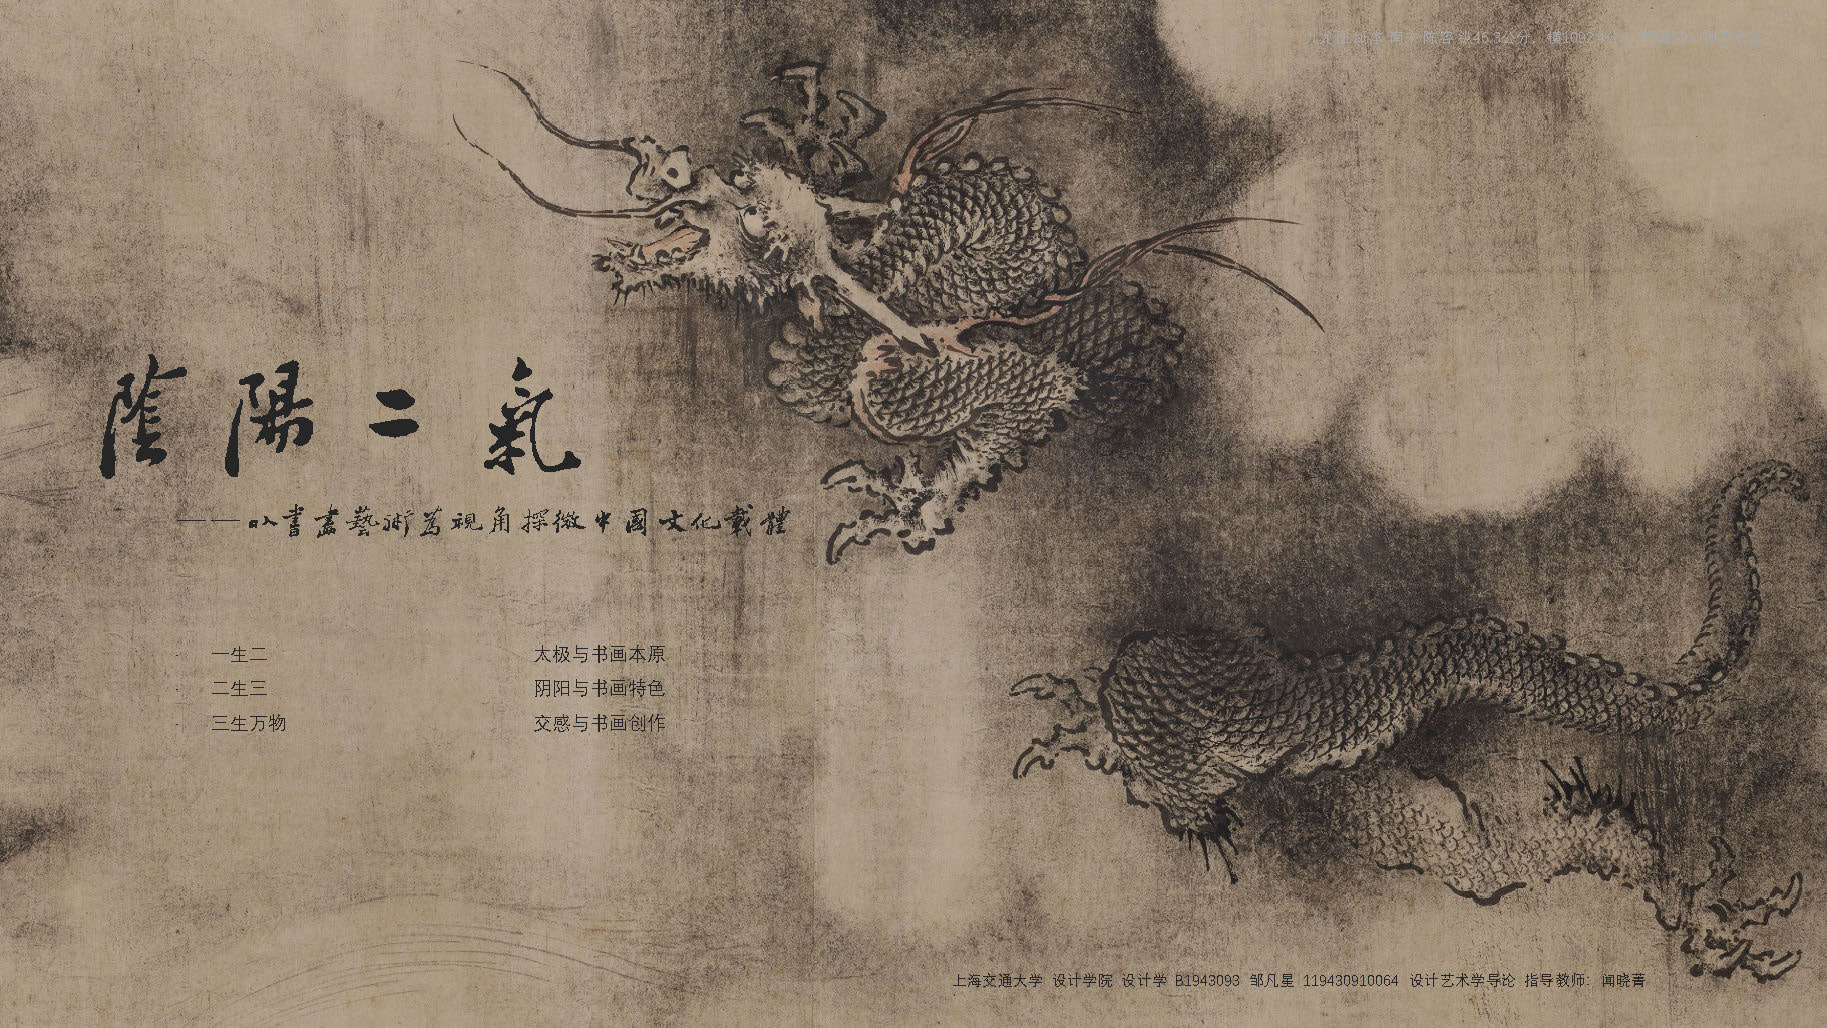 陈容 纵46.3公分，横109
陰陽二氣
——以書畫藝術為視角探微中國文化載體
一生二 太极与书画本原
二生三 阴阳与书画特色
三生万物 交感与书画创作
上海交通大学 设计学院 设计学 B1943093 邹凡星 119430910064 设计艺术学导论 指导教师：闻晓菁